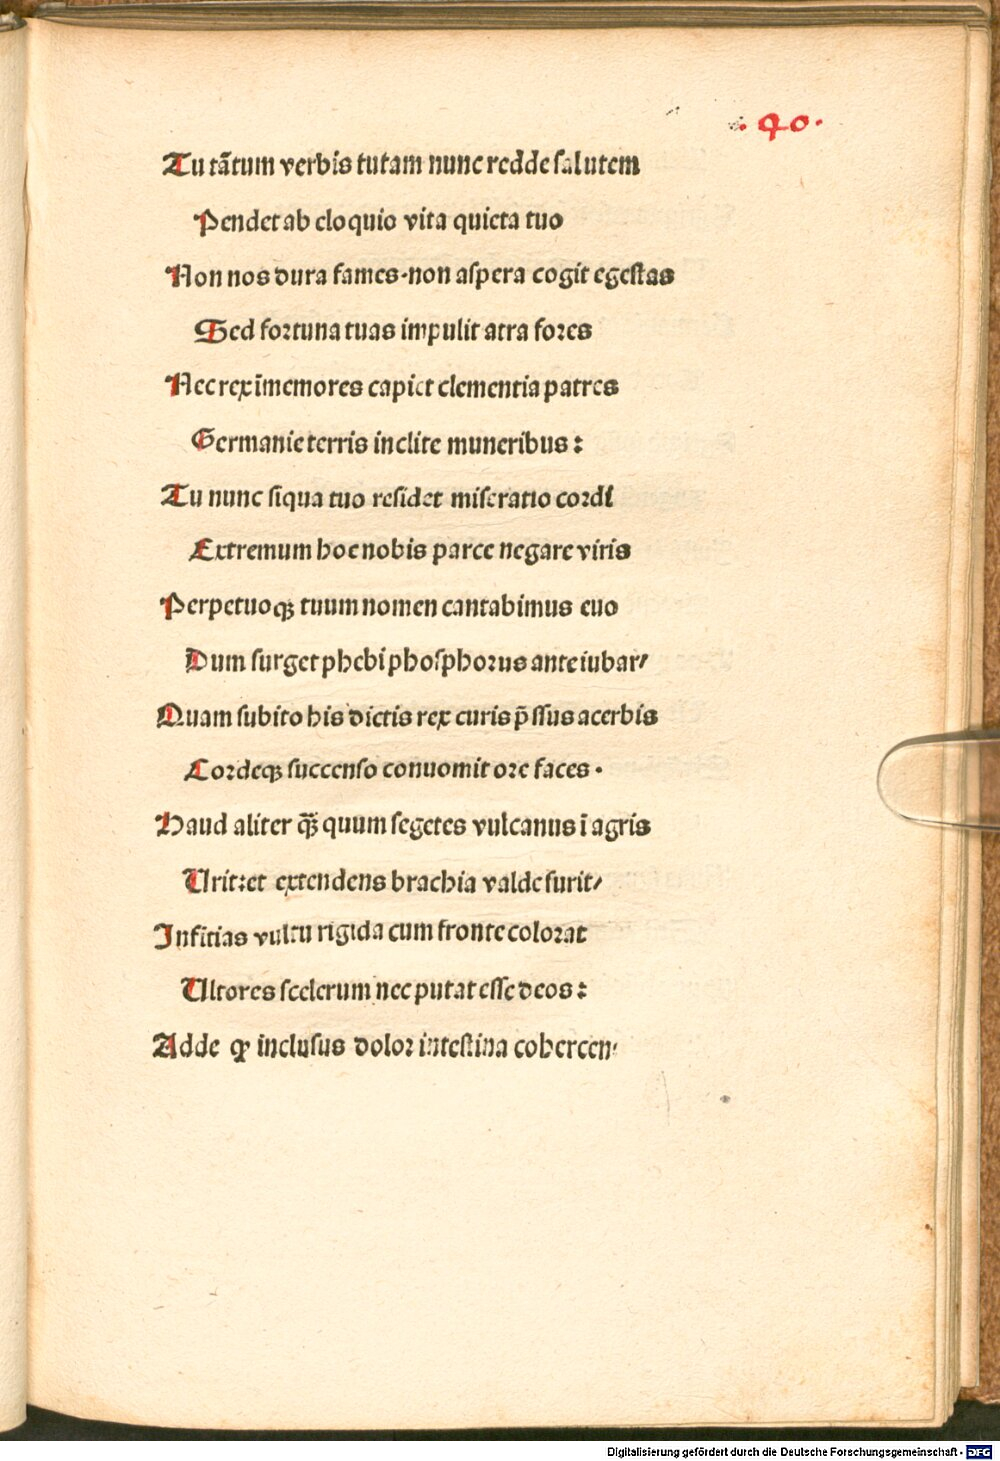 .40.
Tu tãtum verbis tutam nunc redde salutem
Pendet ab eloquio vita quieta tuo
Non nos dura fames·non aspera cogit egestas
Sed fortuna tuas impulit atra fores
Nec rex ĩmemores capiet clementia patres
Germanie terris inclite muneribus:
Tu nunc siqua tuo residet miseratio cordi
Extremum hoc nobis parce negare viris
Perpetuoqȝ tuum nomen cantabimus euo
Dum surget phebi phosphorus ante iubar/
Quam subito his dictis rex curis p̃ssus acerbis
Cordeqȝ succenso conuomit ore faces·
Haud aliter q̃ȝ quum segetes vulcanus ĩ agris
Urit:et extendens brachia valde furit/
Infitias vultu rigida cum fronte colorat
Ultores scelerum nec putat esse deos:
Adde ꝙ inclusus dolor intestina cohercen/
Digitalisierung gefördert durch die Deutsche Forschungsgemeinschaft - DFG